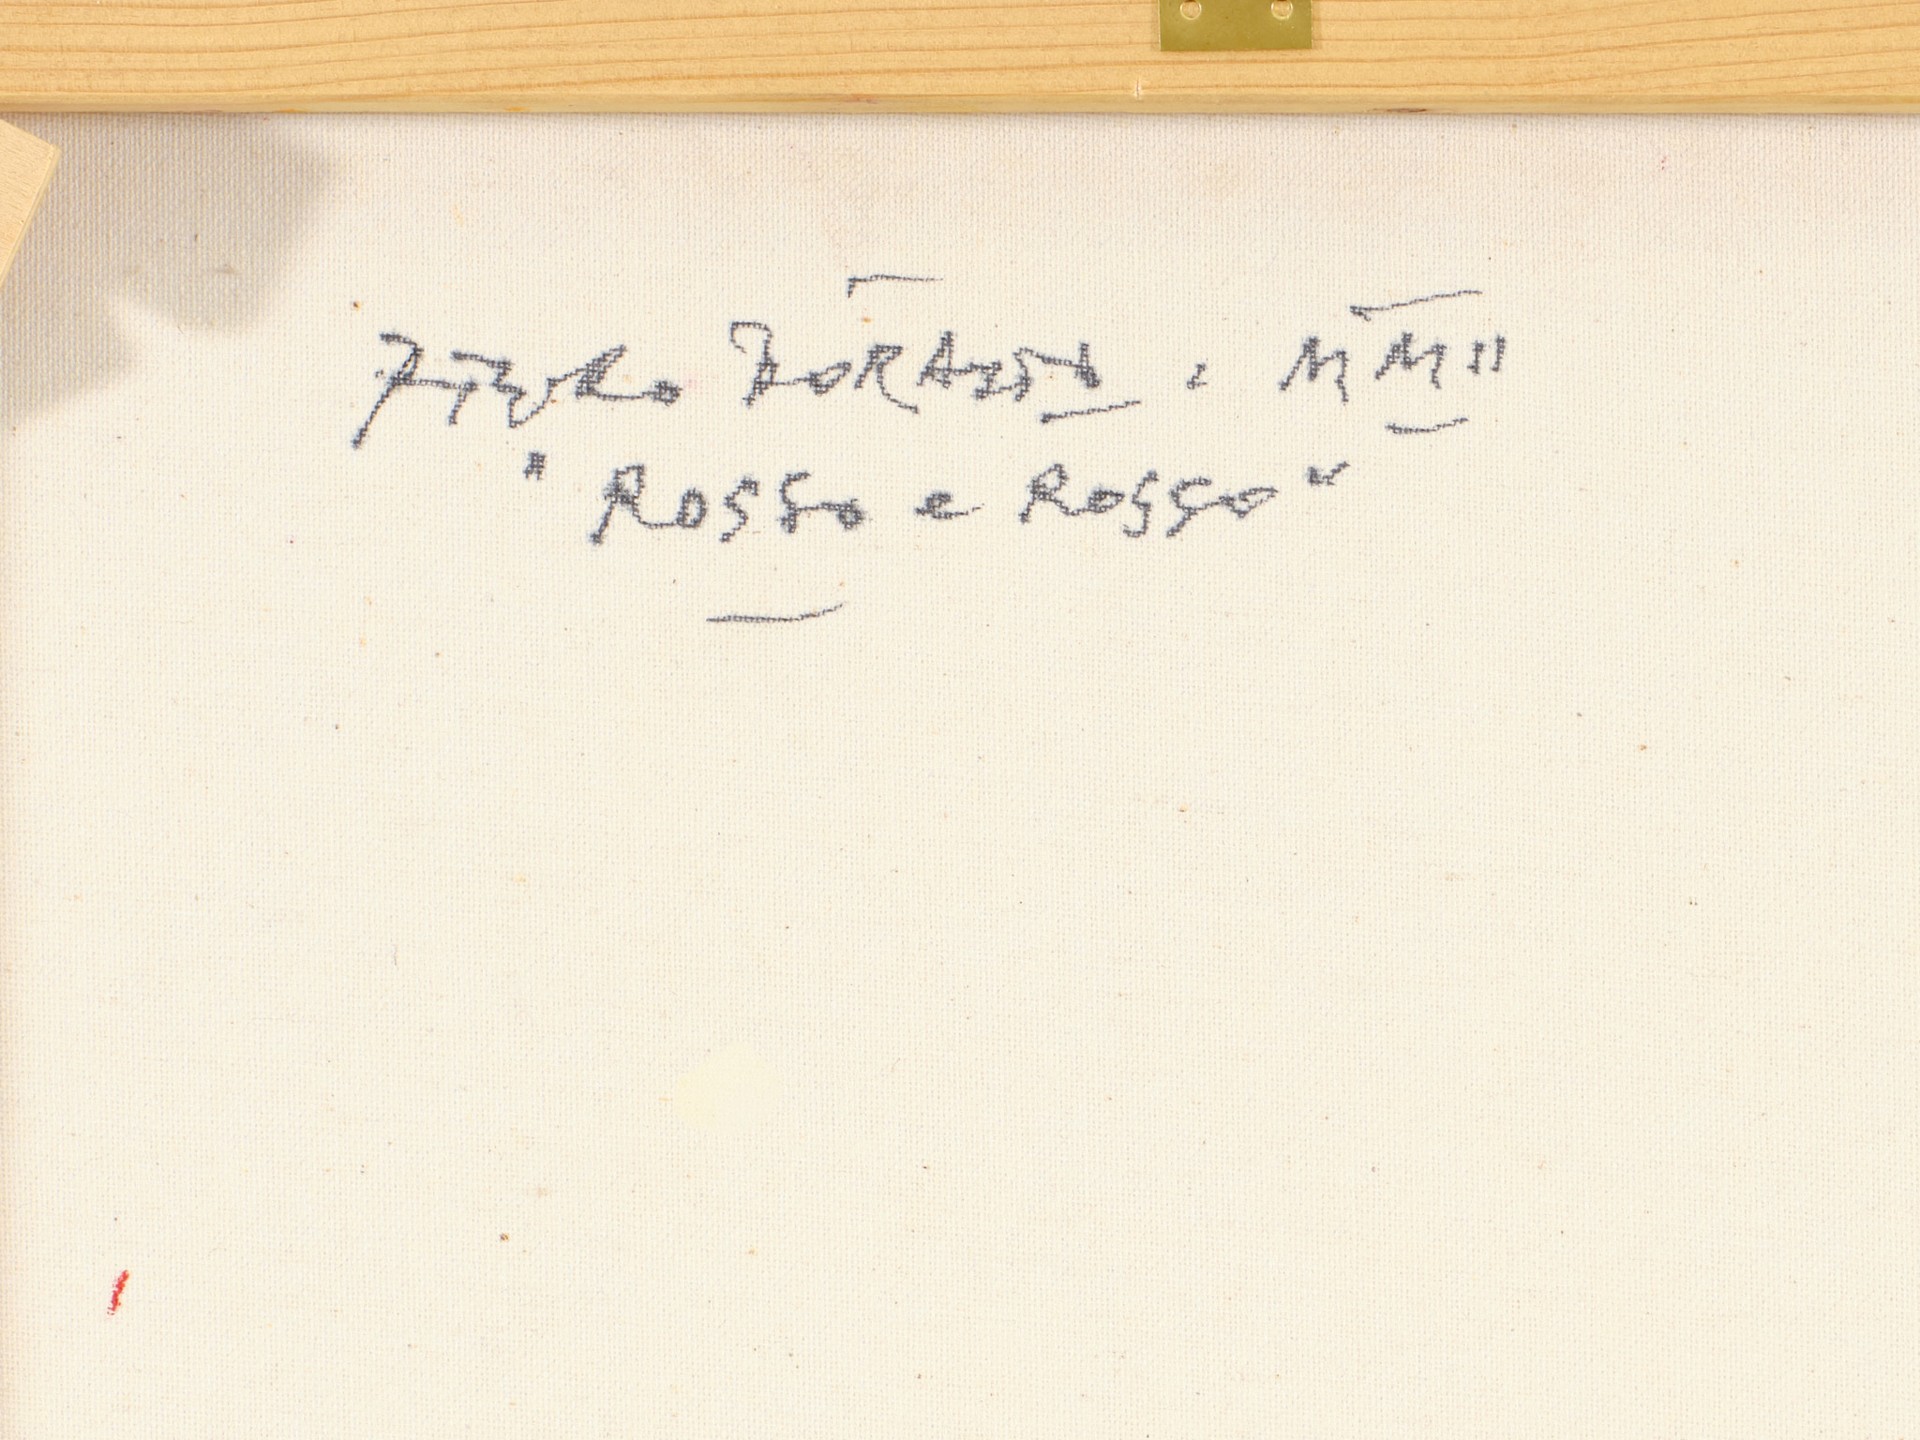 Piero DORAZIO . MMII
"Rosso e Rosso"